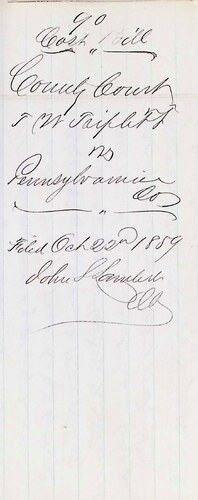 90
Cost Bill
County Court
T W Triplett
vs
Pennsylvania
Co
Filed Oct 22nd 1859
John S Lambert
Clk